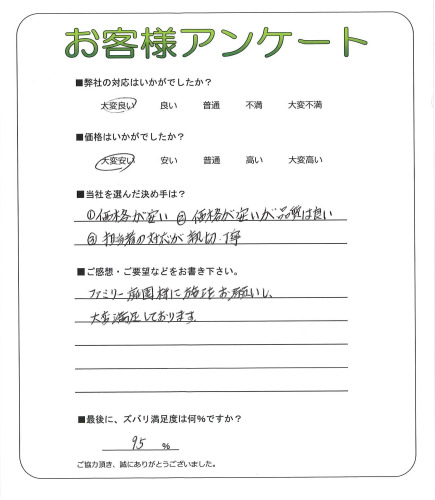 お客様アンケート
■弊社の対応はいかがでしたか?
大変良い 良い 普通 不満 大変不満
■価格はいかがでしたか?
大変安い 安い 普通 高い 大変高い
■当社を選んだ決め手は?
①価格が安い ②価格が安いが品質は良い
③担当者の対応が親切、丁寧
■ご感想・ご要望などをお書き下さい。
ファミリー庭園様に施法お願いし、
大変満足しております。
■最後に、ズバリ満足度は何%ですか?
95 %
ご協力頂き、誠にありがとうございました。